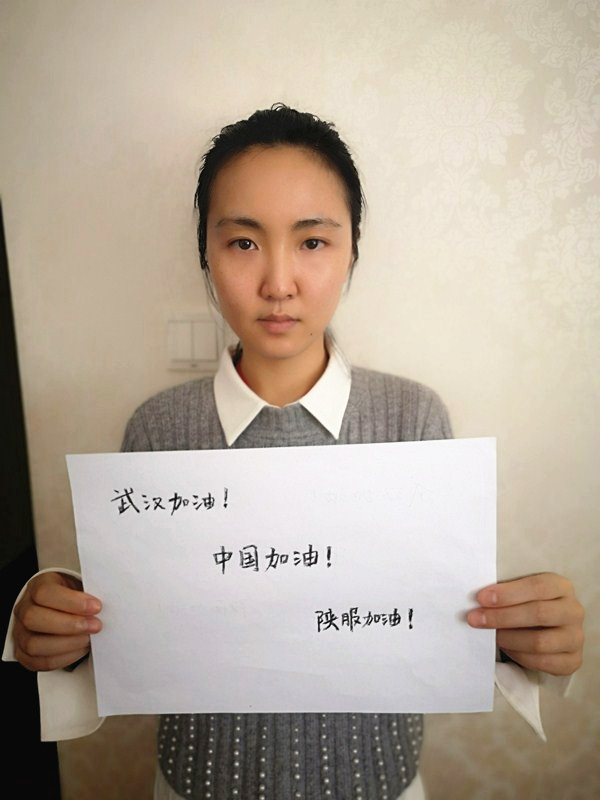 武汉加油！
中国加油！
陕服加油！